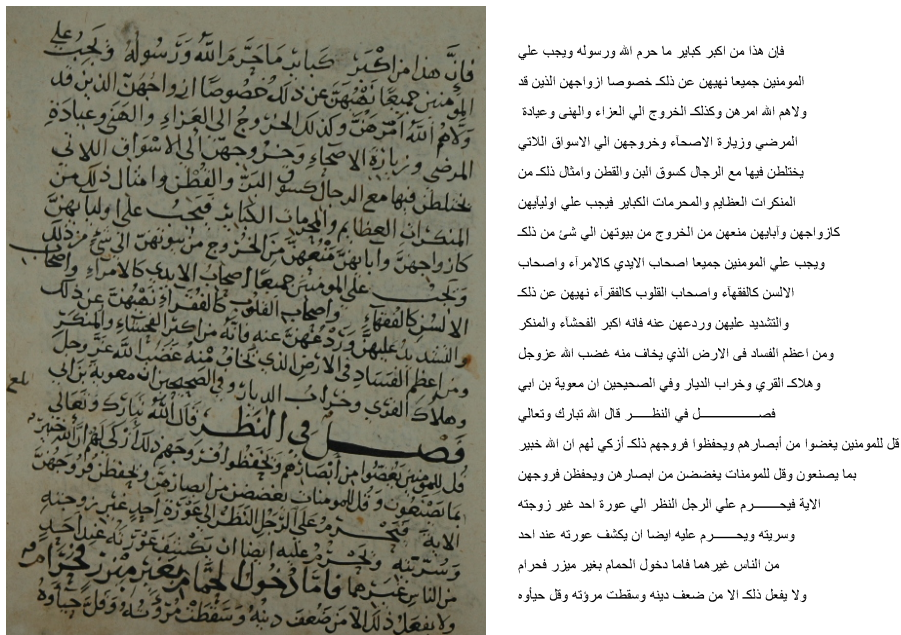 فإن هذا من اكبر كباير ما حرم الله ورسوله ويجب علي
المومنين جميعا نهيهن عن ذلك خصوصا ازواجهن الذين قد
ولاهم الله امرهن وكذلك الخروج الي العزاء والهنى وعيادة
المرضي وزيارة الاصحآء وخروجهن الي الاسواق اللاتي
يختلطن فيها مع الرجال كسوق البن والقطن وامثال ذلك من
المنكرات العظايم والمحرمات الكباير فيجب علي اوليآيهن
كازواجهن وآبايهن منعهن من الخروج من بيوتهن الي شئ من ذلك
ويجب علي المومنين جميعا اصحاب الايدي كالامرآء واصحاب
الالسن كالفقهآء واصحاب القلوب كالفقرآء نهيهن عن ذلك
والتشديد عليهن وردعهن عنه فانه اكبر الفحشآء والمنكر
ومن اعظم الفساد فى الارض الذي يخاف منه غضب الله عزوجل
وهلاك القري وخراب الديار وفي الصحيحين ان معوية بن ابي
فصـــــــــل في النظـــر قال الله تبارك وتعالي
قل للمومنين يغضوا من أبصارهم ويحفظوا فروجهم ذلك أزكي لهم ان الله خبير
بما يصنعون وقل للمومنات يغضضن من ابصارهن ويحفظن فروجهن
الاية فيحـــــرم علي الرجل النظر الي عورة احد غير زوجته
وسريته ويحـــــرم عليه ايضا ان يكشف عورته عند احد
من الناس غيرهما فاما دخول الحمام بغير ميزر فحرام
ولا يفعل ذلك الا من ضعف دينه وسقطت مرؤته وقل حيأوه